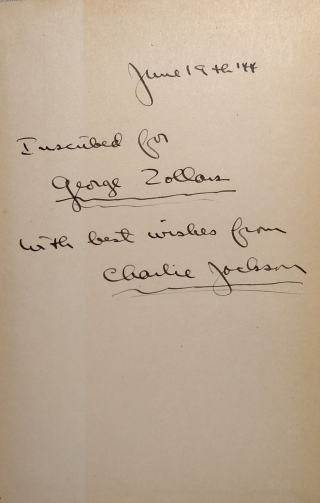 June 19th '44
Inscribed for
George Zollars
with best wishes from
Charlie Jackson